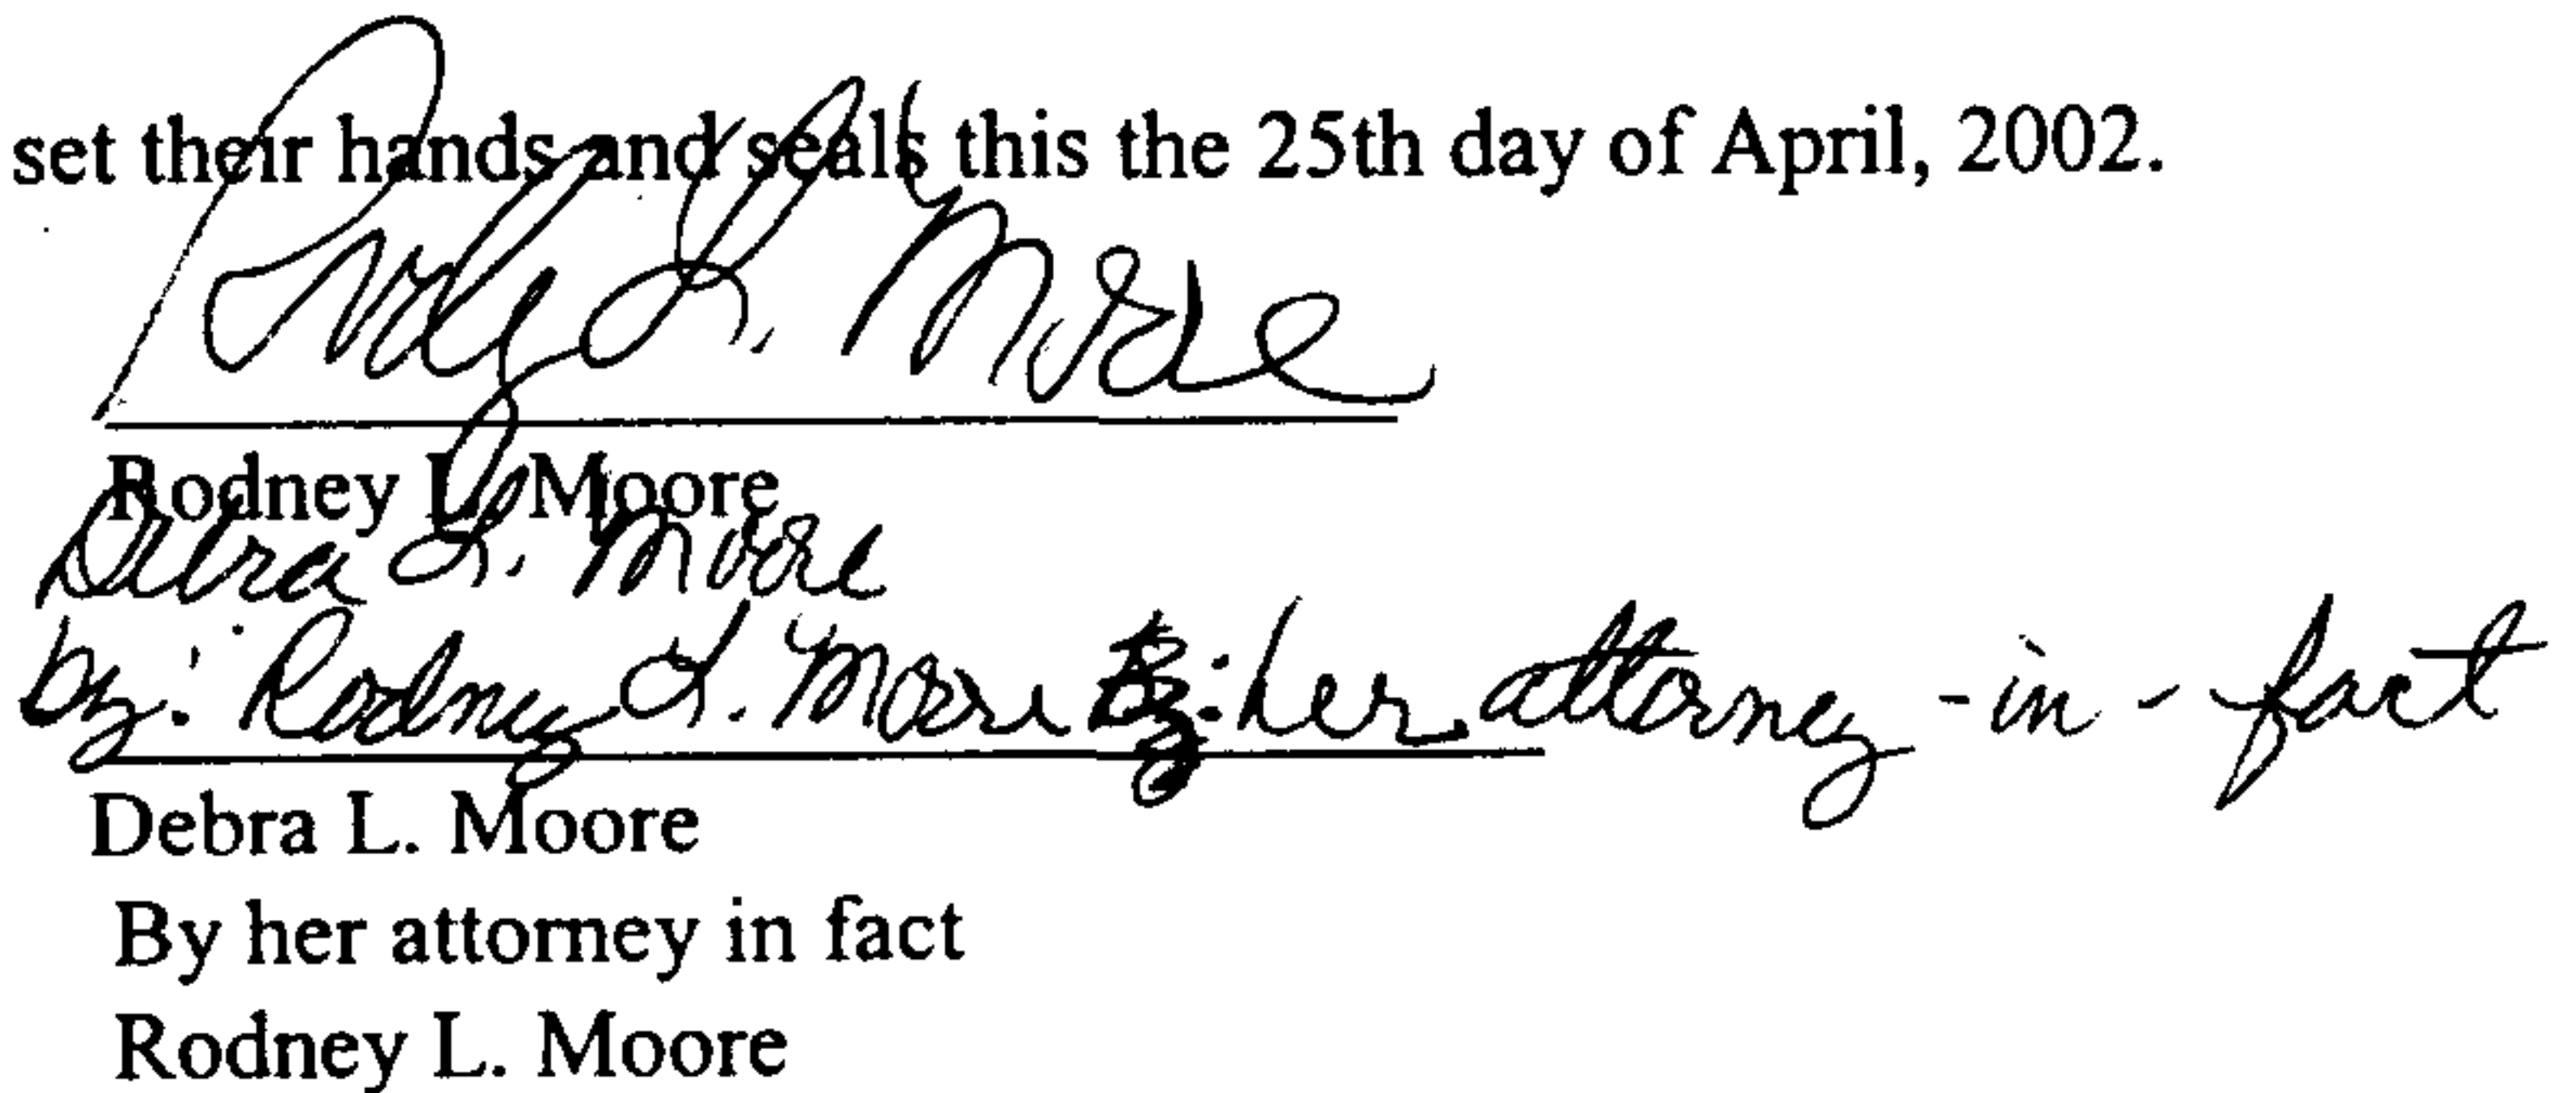 set their hands and seals this the 25th day of April, 2002.
Rodney L. Moore
Rodney L. Moore
Debra L. Moore
by: Rodney L. Moore By: her attorney-in-fact
Debra L. Moore
By her attorney in fact
Rodney L. Moore